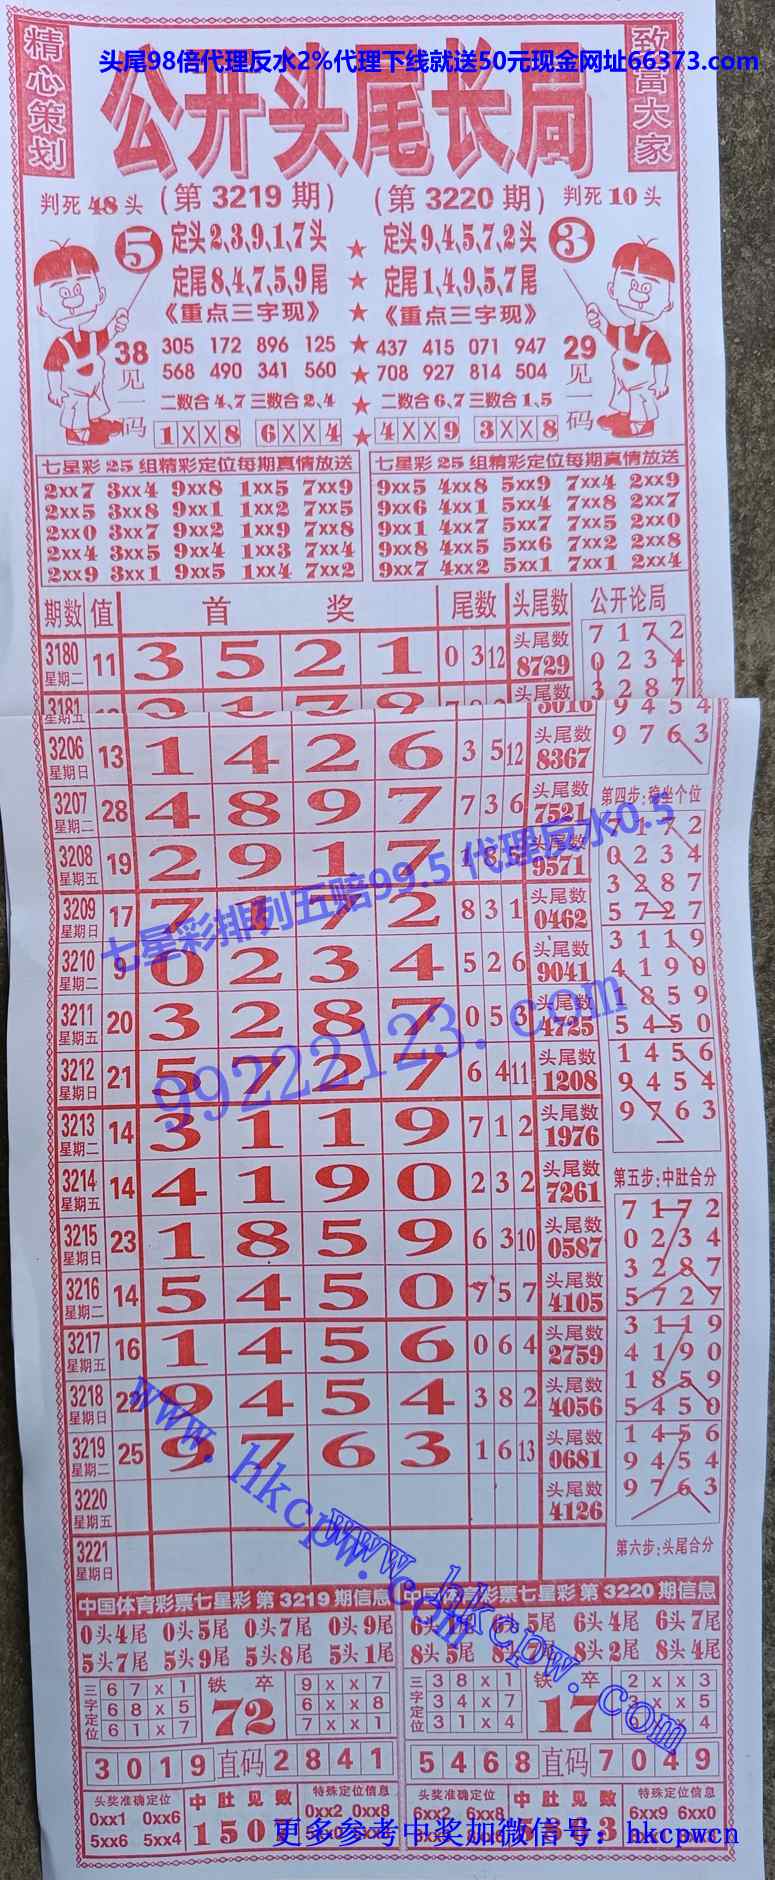 头尾98倍代理反水2%代理下线就送50元现金网址66373.com
精心策划
公开头尾长局
致富大家
判死48头 (第3219期) (第3220期) 判死10头
5 定头2,3,9,1,7头 ★ 定头9,4,5,7,2头 3
定尾8,4,7,5,9尾 ★ 定尾1,4,9,5,7尾
《重点三字现》 ★ 《重点三字现》
38见一码 305 172 896 125 ★ 437 415 071 947 29见一码
568 490 341 560 ★ 708 927 814 504
二数合4、7三数合2、4 ★ 二数合6、7三数合1、5
1XX8 6XX4 ★ 4XX9 3XX8
七星彩25组精彩定位每期真情放送 七星彩25组精彩定位每期真情放送
2xx7 3xx4 9xx8 1xx5 7xx9 9xx5 4xx8 5xx9 7xx4 2xx9
2xx5 3xx8 9xx1 1xx2 7xx5 9xx6 4xx1 5xx4 7xx8 2xx7
2xx0 3xx7 9xx2 1xx9 7xx8 9xx1 4xx7 5xx7 7xx5 2xx0
2xx4 3xx5 9xx4 1xx3 7xx4 9xx8 4xx5 5xx6 7xx2 2xx8
2xx9 3xx1 9xx5 1xx4 7xx2 9xx7 4xx2 5xx1 7xx1 2xx4
期数 值 首奖 尾数 头尾数 公开论局
3180 星期二 11 3 5 2 1 0 3 12 头尾数 8729
3181 星期五 头尾数 5016
3206 星期日 13 1 4 2 6 3 5 12 头尾数 8367
3207 星期二 28 4 8 9 7 7 3 6 头尾数 7521
3208 星期五 19 2 9 1 7 1 8 5 头尾数 9571
3209 星期日 17 7 1 7 2 8 3 1 头尾数 0462
3210 星期二 9 0 2 3 4 5 2 6 头尾数 9041
3211 星期五 20 3 2 8 7 0 5 3 头尾数 4725
3212 星期日 21 5 7 2 7 6 4 11 头尾数 1208
3213 星期二 14 3 1 1 9 7 1 2 头尾数 1976
3214 星期五 14 4 1 9 0 2 3 2 头尾数 7261
3215 星期日 23 1 8 5 9 6 3 10 头尾数 0587
3216 星期二 14 5 4 5 0 7 5 7 头尾数 4105
3217 星期五 16 1 4 5 6 0 6 4 头尾数 2759
3218 星期日 22 9 4 5 4 3 8 2 头尾数 4056
3219 星期二 25 9 7 6 3 1 6 13 头尾数 0681
3220 星期五 头尾数 4126
3221 星期日
7 1 7 2
0 2 3 4
3 2 8 7
9 4 5 4
9 7 6 3
第四步:稳坐个位
7 1 7 2
0 2 3 4
3 2 8 7
5 7 2 7
3 1 1 9
4 1 9 0
1 8 5 9
5 4 5 0
1 4 5 6
9 4 5 4
9 7 6 3
第五步:中肚合分
7 1 7 2
0 2 3 4
3 2 8 7
5 7 2 7
3 1 1 9
4 1 9 0
1 8 5 9
5 4 5 0
1 4 5 6
9 4 5 4
9 7 6 3
第六步:头尾合分
七星彩排列五赔99.5 代理反水0.5
99222123.com
www.hkcpw.com
www.hkcpw.com
中国体育彩票七星彩 第3219期信息
0头4尾 0头5尾 0头7尾 0头9尾
5头7尾 5头9尾 5头8尾 5头1尾
三字定位 67x1 铁卒 72 9xx7
68x5 6xx8
61x7 7xx1
3019 直码 2841
头奖准确定位 中肚见数 特殊定位信息
0xx1 0xx6 0xx2 0xx8
5xx6 5xx4 150
中国体育彩票七星彩 第3220期信息
6头4尾 6头7尾
8头5尾 8头2尾 8头4尾
三字定位 38x1 铁卒 17 2xx3
34x7
31x4
5468 直码 7049
头奖准确定位 中肚见数 特殊定位信息
6xx2 6xx8 6xx9 6xx0
更多参考中奖加微信号:hkcpwcn